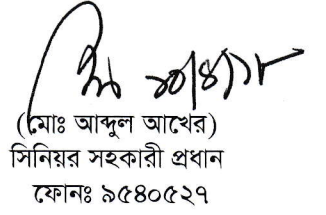 ১০/৪/১৮
(মোঃ আব্দুল আখের)
সিনিয়র সহকারী প্রধান
ফোনঃ ৯৫৪০৫২৭